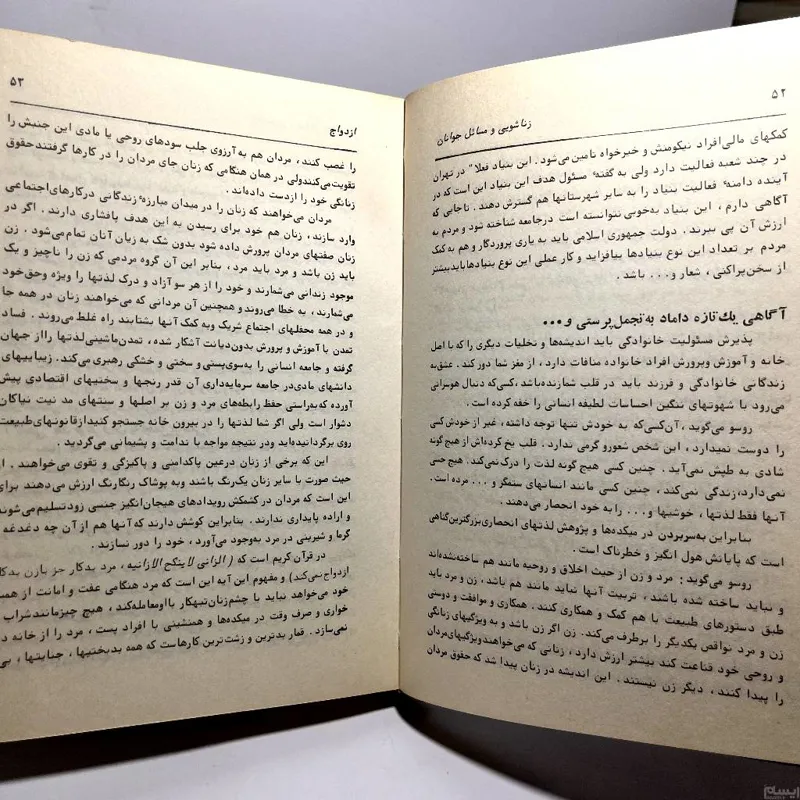 ۵۲
زناشویی و مسائل جوانان
کمکهای مالی‌افراد نیکومنش و خبرخواه تامین می‌شود . این بنیاد فعلا" در تهران
در چند شعبه فعالیت دارد ولی به گفتهٔ مسئول هدف این بنیاد این است که در
آینده دامنهٔ فعالیت بنیاد را به سایر شهرستانها هم گسترش دهند . تاجایی که
آگاهی دارم ، این بنیاد به‌خوبی نتوانسته است درجامعه شناخته شود و مردم به
ارزش آن پی ببرند . دولت جمهوری اسلامی باید به یاری پروردگار و هم به کمک
مردم بر تعداد این نوع بنیادها بیافزاید و کار عملی این نوع بنیادها باید بیشتر
از سخن‌پراکنی ، شعار و . . . باشد .
آگاهی یك تازه داماد به تجمل‌پرستی و...
پذیرش مسئولیت خانوادگی باید اندیشه‌ها و تخلیات دیگری را که با اصل
خانه و آموزش وپرورش افراد خانواده منافات دارد ، از مغز شما دور کند . عشق‌به
زندگانی خانوادگی و فرزند باید در قلب شمازنده‌باشد ،کسی‌که دنبال هوسرانی
می‌رود با شهوتهای ننگین احساسات لطیفه انسانی را خفه کرده است .
روسو می‌گوید ، آن‌کسی‌که به خودش تنها توجه داشته ، غیر از خودش کسی
را دوست نمیدارد ، این شخص شعورو گرمی ندارد . قلب یخ کرده‌اش از هیچ گونه
شادی به طپش نمی‌آید . چنین کسی هیچ گونه لذت را درک نمی‌کند . هیچ حسی
نمی‌دارد،زندگی نمی‌کند ، چنین کسی مانند انسانهای ستمگر و . . . مرده است .
آنها فقط لذتها ، خوشیها و . . . را به خود انحصار می‌دهند .
بنابراین به‌سربردن در میکده‌ها و پژوهش لذتهای انحصاری‌بزرگترین‌گناهی
است که پایانش هول انگیز و خطرناک است .
روسو می‌گوید : مرد و زن از حیث اخلاق و روحیه مانند هم ساخته‌نشده‌اند
و نباید ساخته شده باشند ، تربیت آنها نباید مانند هم باشد ، زن و مرد باید
طبق دستورهای طبیعت با هم کمک و همکاری کنند . همکاری و موافقت و دوستی
زن و مرد نواقص یکدیگر را برطرف می‌کند . زن اگر زن باشد و به ویژگیهای زنانگی
و روحی خود قناعت کند بیشتر ارزش دارد ، زنانی که می‌خواهند ویژگیهای‌مردان
را پیدا کنند ، دیگر زن نیستند . این اندیشه در زنان پیدا شد که حقوق مردان
۵۳
ازدواج
را غصب کنند ، مردان هم به آرزوی جلب سودهای روحی یا مادی این جنبش را
تقویت می‌کنندولی در همان هنگامی که زنان جای مردان را در کارها گرفتندحقوق
زنانگی خود را ازدست داده‌اند .
مردان می‌خواهند که زنان را در میدان مبارزهٔ زندگانی درکارهای‌اجتماعی
وارد سازند ، زنان هم خود برای رسیدن به این هدف پافشاری دارند . اگر در
زنان صفتهای مردان پرورش داده شود بدون شک به زیان آنان تمام می‌شود . زن
باید زن باشد و مرد باید مرد ، بنابر این آن گروه مردمی که زن را ناچیز و یک
موجود زندانی می‌شمارند و خود را از هر سو آزاد و درک لذتها را ویژه وحق‌خود
می‌شمارند ، به خطا می‌روند و همچنین آن مردانی که می‌خواهند زنان در همه جا
و در همه محفلهای اجتماع شریک وبه کمک آنها بشتابند راه غلط می‌روند . فساد
تمدن با آموزش و پرورش بدون‌دیانت آشکار شده ، تمدن‌ماشینی‌لذتها رااز جهان
گرفته و جامعه انسانی را به‌سوی‌پستی و سختی و خشکی رهبری می‌کند . زیباییهای
دانشهای مادی‌در جامعه سرمایه‌داری آن قدر رنجها و سختیهای اقتصادی پیش
آورده که‌به‌راستی حفظ رابطه‌های مرد و زن بر اصلها و سنتهای مد نیت نیاکان
دشوار است ولی اگر شما لذتها را در بیرون خانه جستجو کنیداز قانونهای‌طبیعت
روی برگردانیده‌اید ودر نتیجه مواجه با ندامت و پشیمانی می‌گردید .
این که برخی از زنان درعین پاکدامنی و پاکیزگی و تقوی می‌خواهند . از
حیث صورت با سایر زنان یک‌رنگ باشند وبه پوشاک رنگارنگ ارزش می‌دهند برای
این است که مردان در کشمکش رویدادهای هیجان‌انگیز جنسی زودتسلیم‌می‌شوند
و اراده پایداری ندارند . بنابراین کوشش دارند که آنها هم از آن چه دغدغه
گرما و شیرینی در مرد به‌وجود می‌آورد ، خود را دور نسازند .
در قرآن کریم است که ( الزانی لاینکح الازانیه ، مرد بدکار جز بازن بدکار
ازدواج نمی‌کند) و مفهوم این آیه این است که مرد هنگامی عفت و امانت از همسر
خود می‌خواهد نباید با چشم‌زنان‌تبهکار بااومعامله‌کند ، هیچ چیزمانندشراب
خواری و صرف وقت در میکده‌ها و همنشینی با افراد پست ، مرد را از خانه د
نمی‌سازد . قمار بدترین و زشت‌ترین کارهاست که همه بدبختیها ، جنایتها ، بی
ایسام